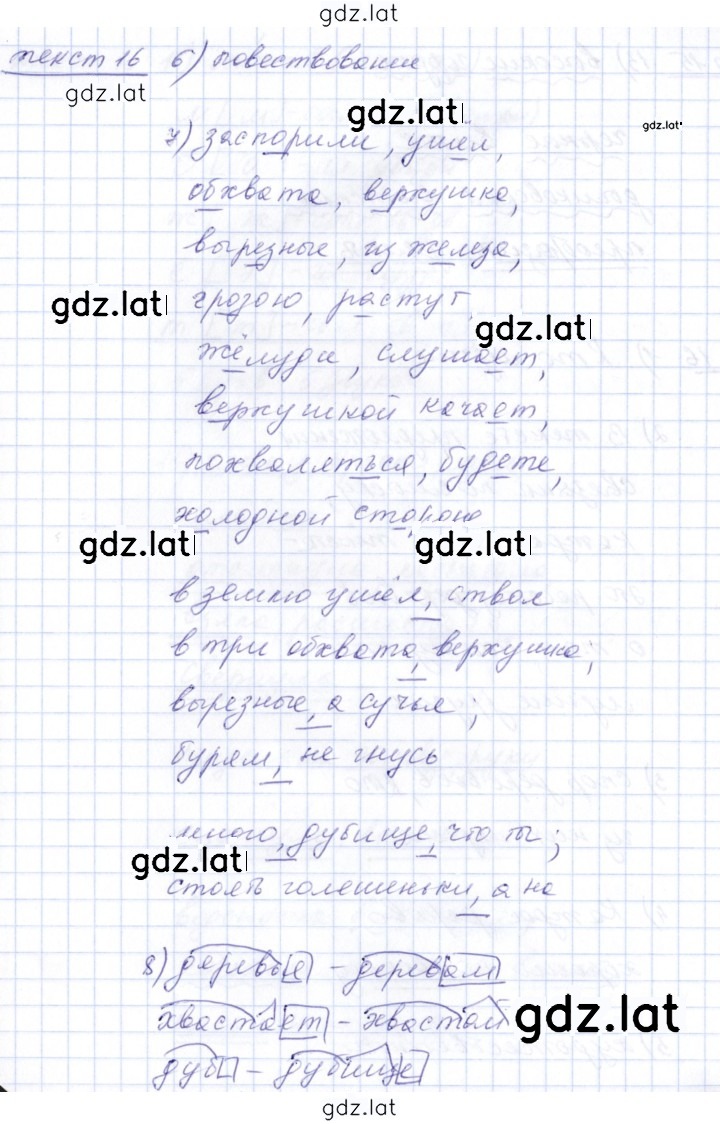 gdz.lat
текст 16 6) повествование
gdz.lat
gdz.lat
gdz.lat
7) заспорили, ушёл,
обхвата, верхушка,
вырезные, из железа,
gdz.lat
грозою, растут,
gdz.lat
жёлуди, слушает,
верхушкой качает,
похваляться, будете,
холодной стороне
gdz.lat
gdz.lat
в землю ушёл, ствол
в три обхвата, верхушка;
вырезные, а сучья;
бурям, не гнусь
много, дубище, что ты;
gdz.lat
стоять голешеньки, а на
8) деревья - деревам
хвастает - хвастай
gdz.lat
дуб - дубище
gdz.lat